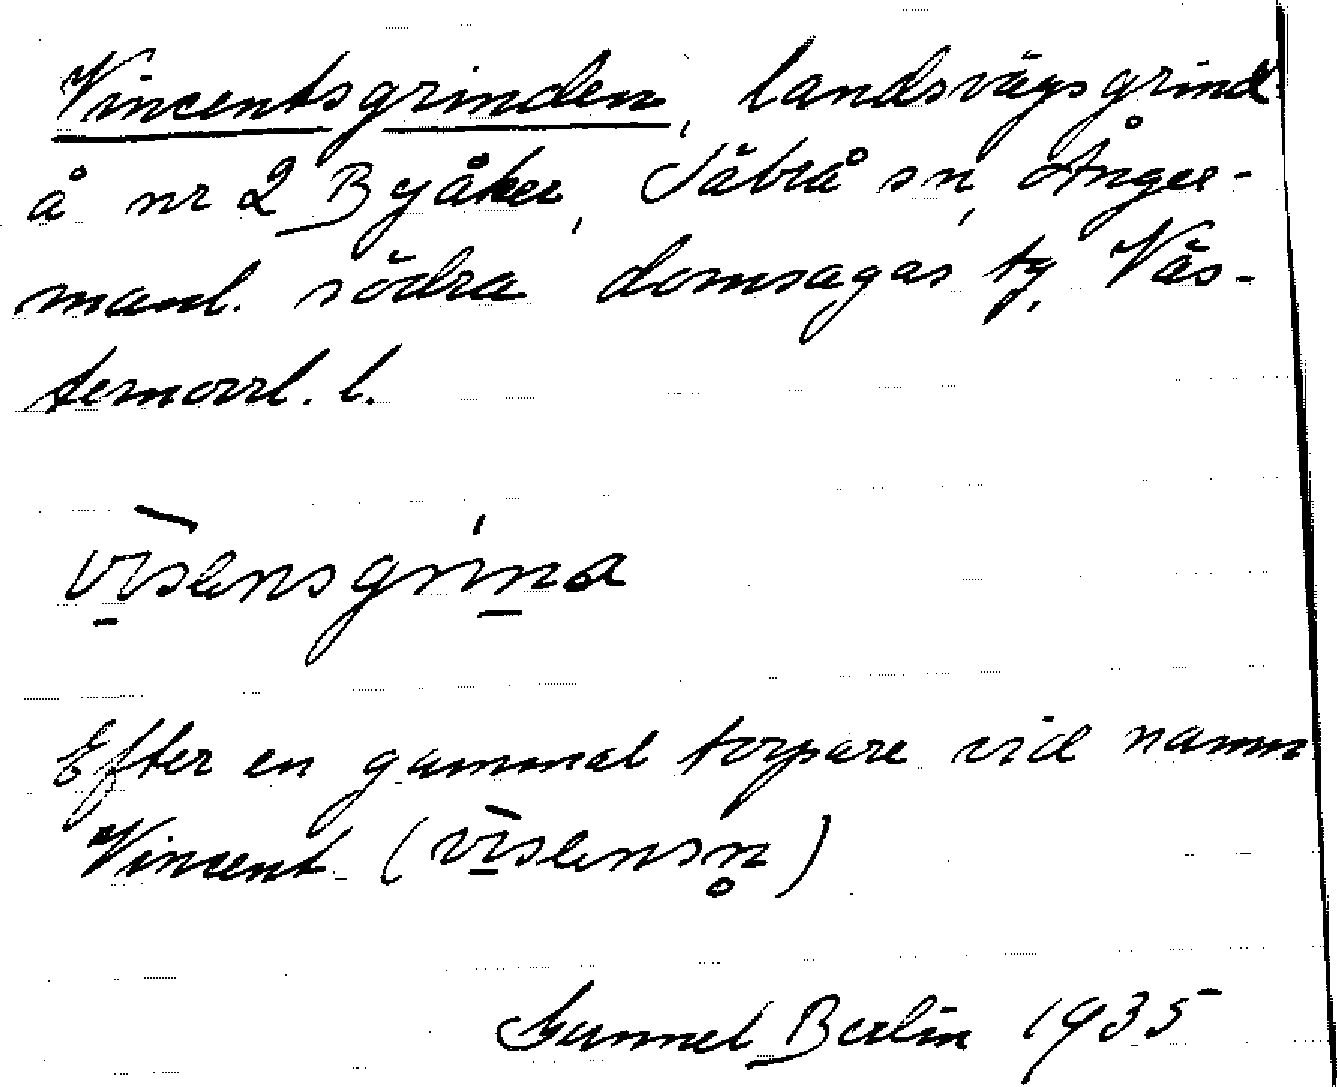 Vincentsgrinden, landsvägsgrind
å nr 2 Byåker, Säbrå sn, Ånger-
manl. södra domsagas tg, Väs-
ternorrl. l.
vı̄slensgrina
Efter en gammal torpare vid namn
Vincent (vı̄slensn̥)
Gunnel Berlin 1935